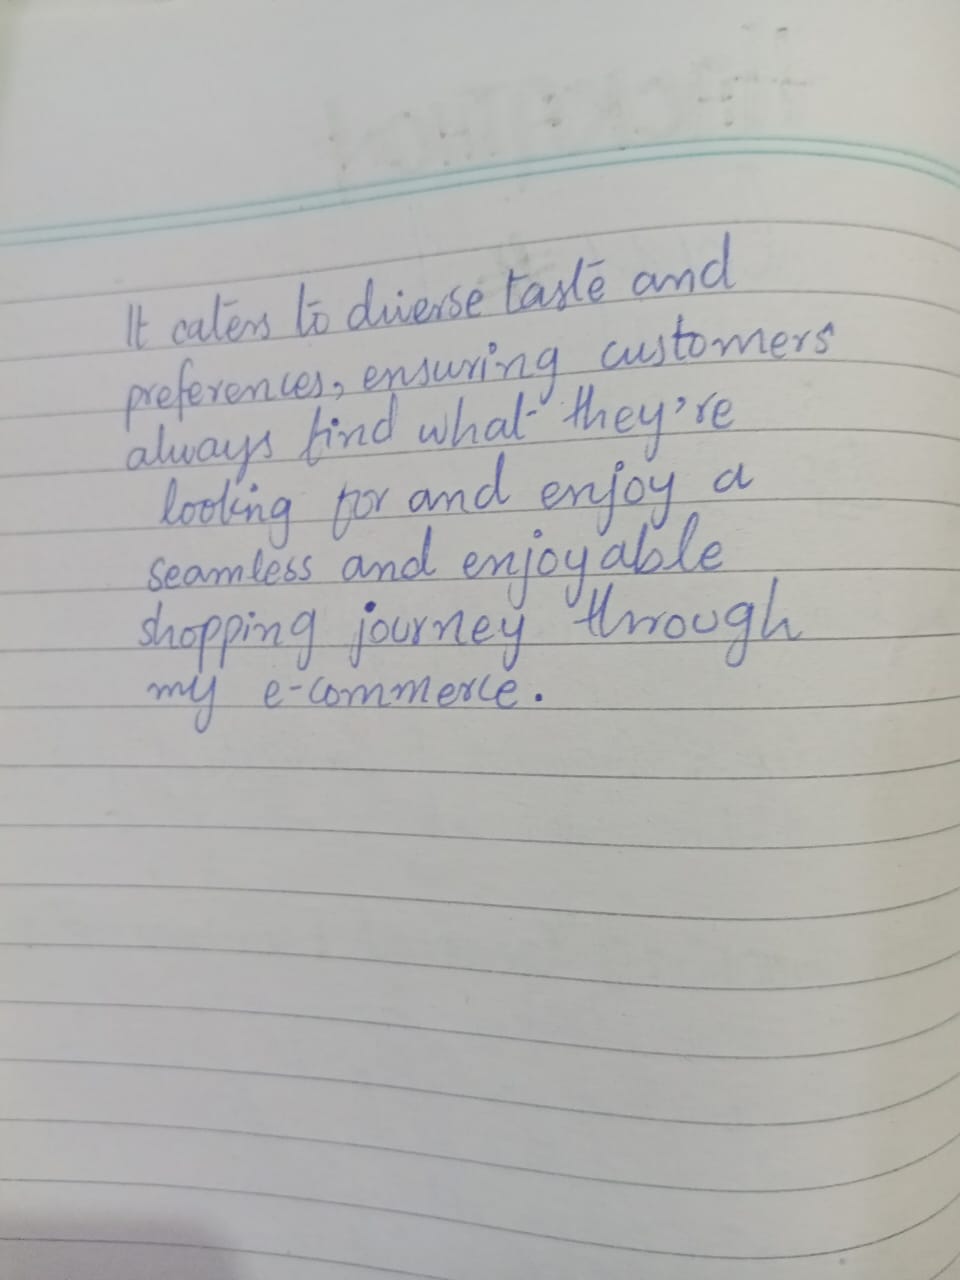 It caters to diverse taste and
preferences, ensuring customers
always find what they're
looking for and enjoy a
seamless and enjoyable
shopping journey through
my e-commerce.